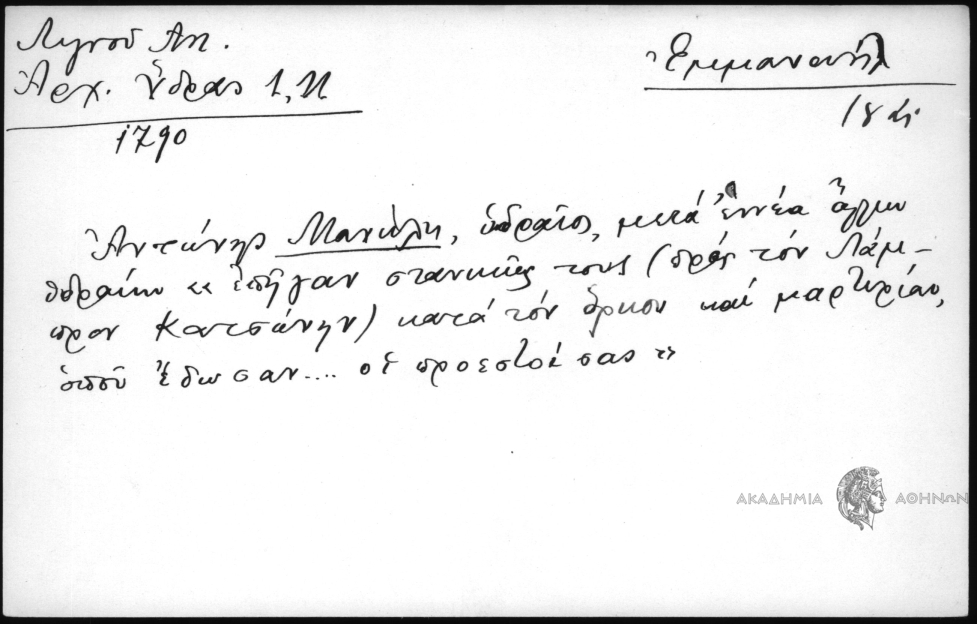 Λιγνοῦ Αντ.
Ἀρχ. Ὕδρας 1,
1790
Ἐμμανουήλ
Ἀντώνης Μανώλη, ὑδραῖος, μετά ἐννέα ἄλλων
Ὑδραίων « ἐπῆγαν στανικῶς τους (πρός τόν Λάμ-
προν Κατσώνην) κατά τόν ὅρκον καί μαρτυρίαν,
ὁποῦ ἔδωσαν.... οἱ προεστοί σας »
ΑΚΑΔΗΜΙΑ ΑΘΗΝΩΝ